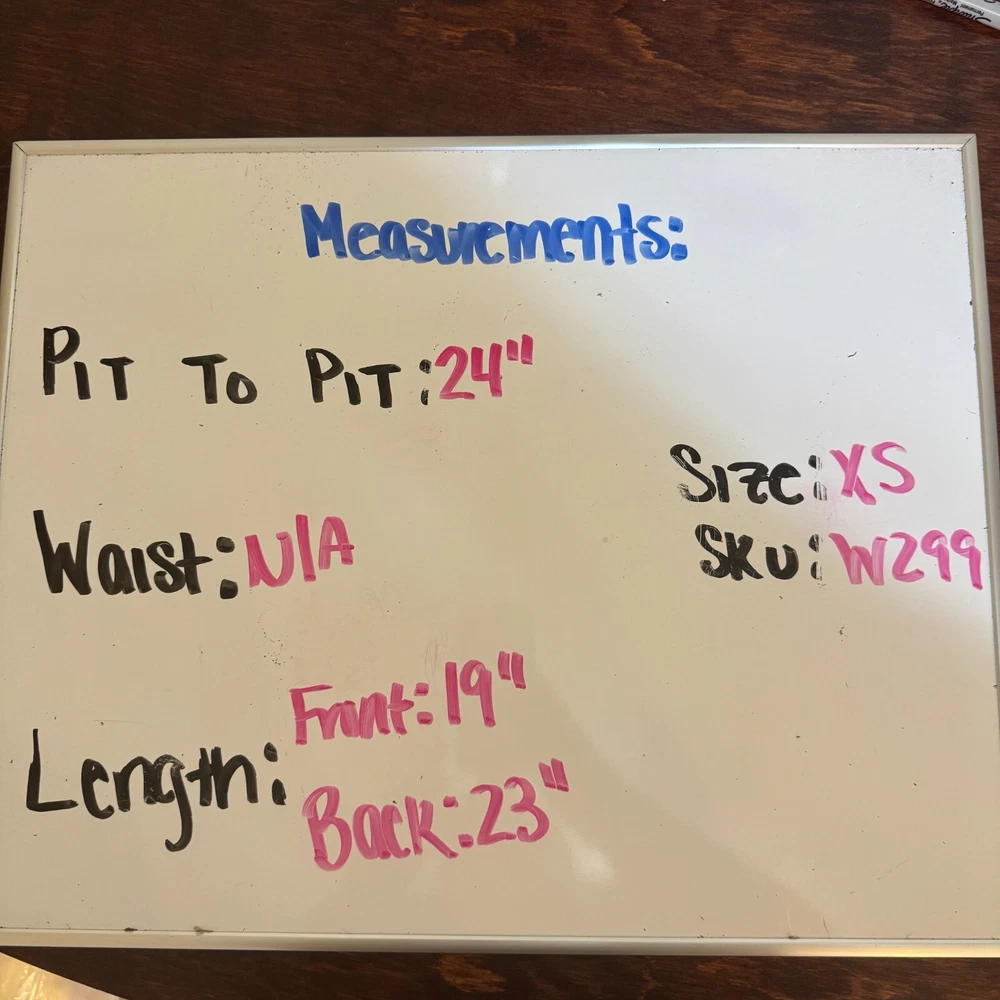 Measurements:
PIT TO PIT: 24"
Size: XS
SKU: W299
Waist: N/A
Length: Front: 19"
Back: 23"